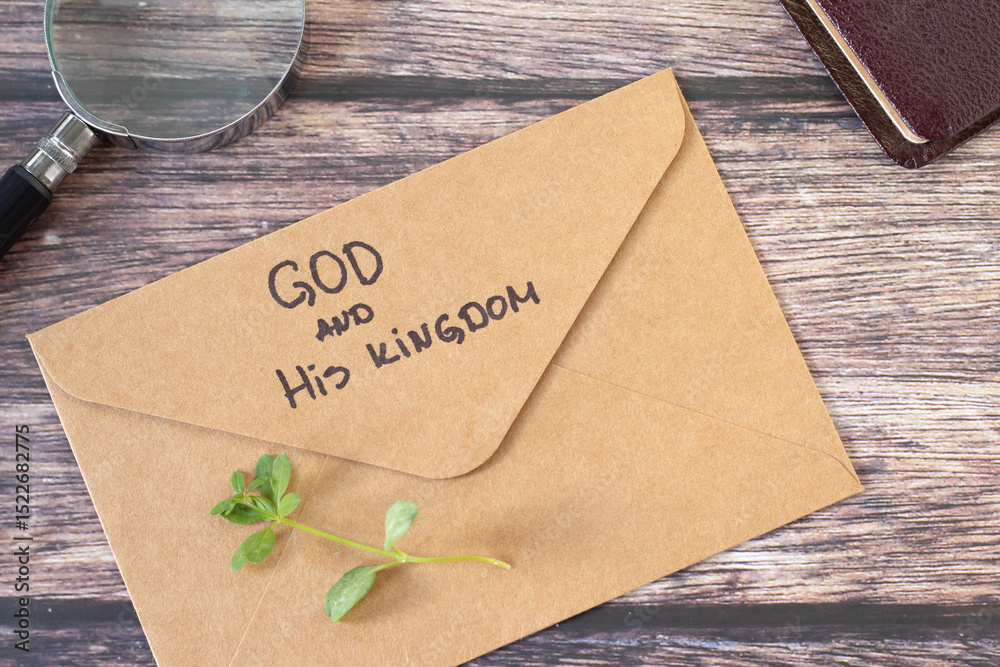 GOD
AND
His KiNGDOM
Adobe Stock | #1522682775